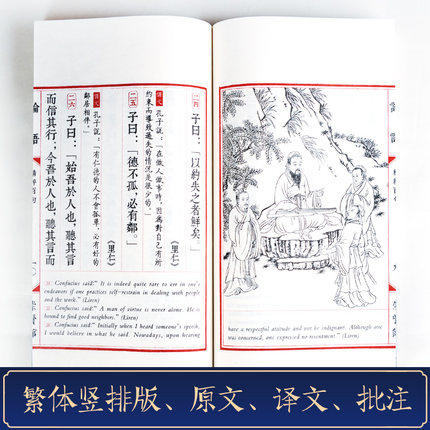 have a respectful attitude and not be indignant. Although one
was concerned, one expressed no resentment." (Liren)
二四 子曰：「以約失之者鮮矣。」
（里仁）
譯文 孔子說：「在做人做事時，因為對自己有所
約束而導致過失的情況是很少的。」
二五 子曰：「德不孤，必有鄰。」
（里仁）
譯文 孔子說：「有仁德的人不會孤單，必有好的
鄰居相伴。」
二六 子曰：「始吾於人也，聽其言
而信其行；今吾於人也，聽其言而
論語
一〇
24 Confucius said:" It is indeed quite rare to err in one's
endeavors if one practices self-restrain in dealing with people
and the work." (Liren)
25 Confucius said:" A man of virtue is never alone. He is
bound to find good neighbors." (Liren)
26 Confucius said:" Initially when I heard someone's speech,
I would believe in what he said. Nowadays, upon hearing
繁体竖排版、原文、译文、批注